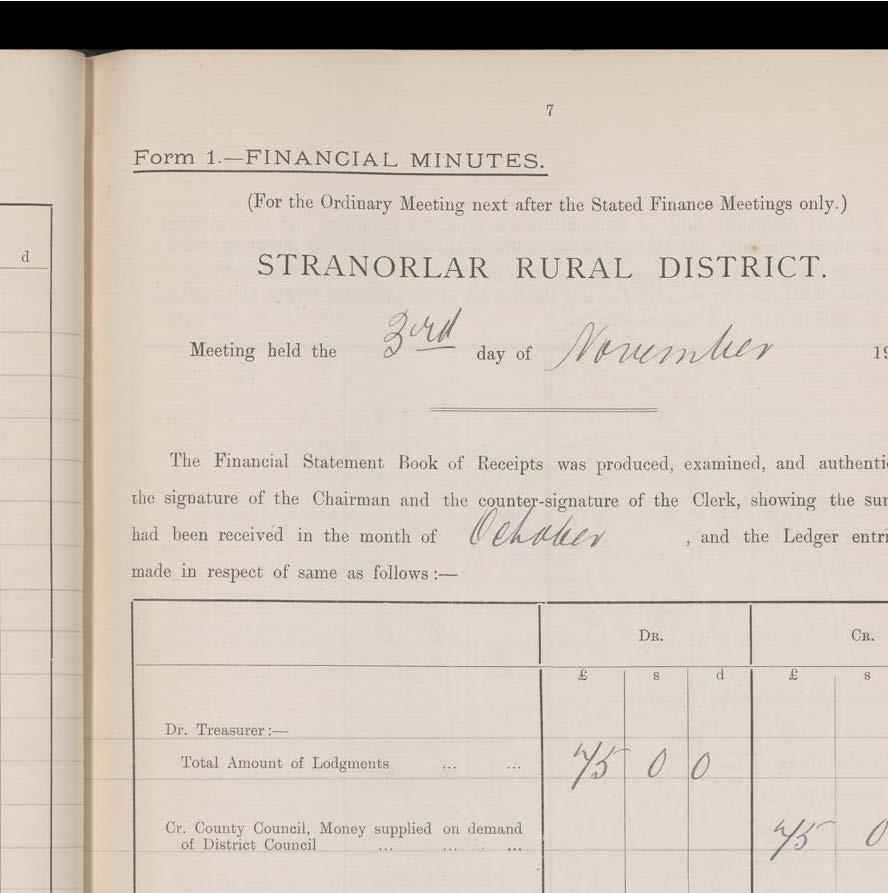 7
Form 1.—FINANCIAL MINUTES.
(For the Ordinary Meeting next after the Stated Finance Meetings only.)
d
STRANORLAR RURAL DISTRICT.
Meeting held the 3rd day of November 19
The Financial Statement Book of Receipts was produced, examined, and authenti
the signature of the Chairman and the counter-signature of the Clerk, showing the sum
had been received in the month of October , and the Ledger entri
made in respect of same as follows :—
DR. CR.
£ s d £ s
Dr. Treasurer :—
Total Amount of Lodgments ... ... 75 0 0
Cr. County Council, Money supplied on demand 75 0
of District Council ... ... ...